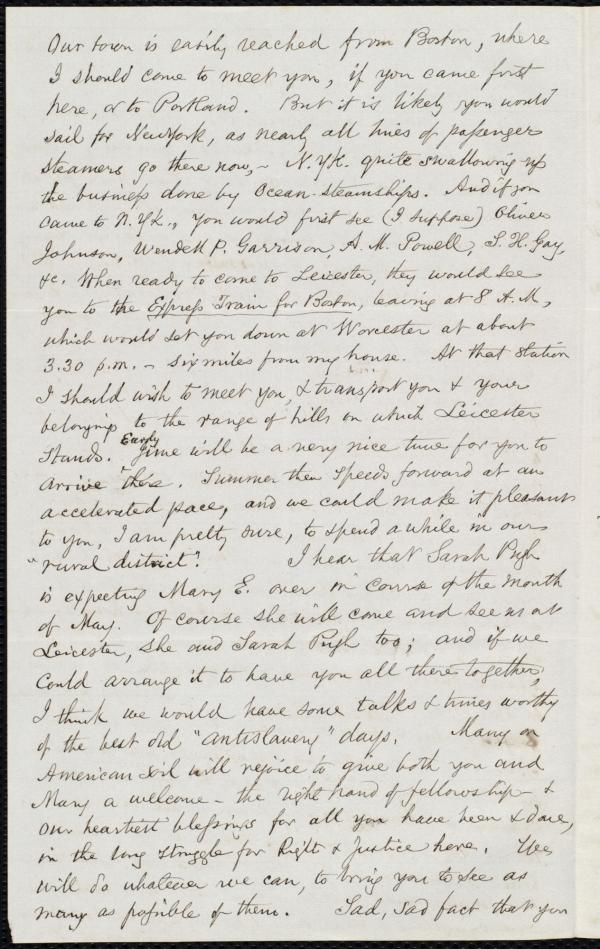 Our town is easily reached from Boston, where
I should come to meet you, if you came first
here, or to Portland. But it is likely you would
sail for New York, as nearly all lines of passenger
steamers go there now, - N. Yk. quite swallowing up
the business done by Ocean-steamships. And if you
came to N. Yk., you would first see (I suppose) Oliver
Johnson, Wendell P. Garrison, A. M. Powell, S. H. Gay,
&c. When ready to come to Leicester, they would see
you to the Express Train for Boston, leaving at 8 A.M.,
which would set you down at Worcester at about
3.30 p.m. - six miles from my house. At that station
I should wish to meet you, & transport you & your
belongings to the range of hills on which Leicester
stands. Early June will be a very nice time for you to
arrive there. Summer then speeds forward at an
accelerated pace, and we could make it pleasant
to you, I am pretty sure, to spend a while in our
"rural district". I hear that Sarah Pugh
is expecting Mary E. over in course of the month
of May. Of course she will come and see us at
Leicester, she and Sarah Pugh too; and if we
could arrange it to have you all there together,
I think we would have some talks & times worthy
of the best old "antislavery" days. Many on
American soil will rejoice to give both you and
Mary a welcome - the right hand of fellowship - &
our heartiest blessings for all you have been & done,
in the long struggle for Right & Justice here. We
will do whatever we can, to bring you to see as
many as possible of them. Sad, sad fact that you